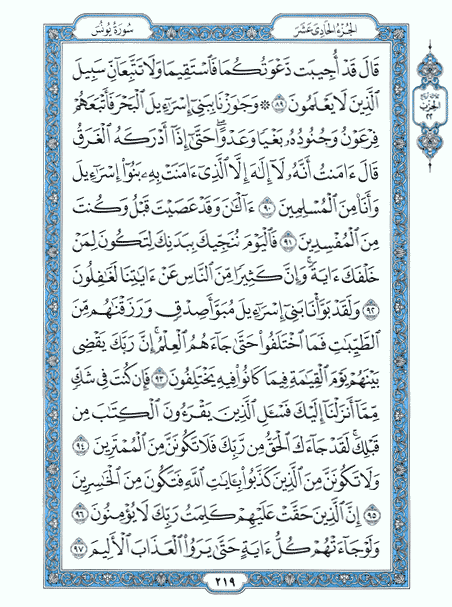 سُورَةُ يُونُسَ
الجُزْءُ الحَادِي عَشَرَ
قَالَ قَدْ أُجِيبَت دَّعْوَتُكُمَا فَٱسْتَقِيمَا وَلَا تَتَّبِعَآنِّ سَبِيلَ
ٱلَّذِينَ لَا يَعْلَمُونَ ٨٩ ۞ وَجَٰوَزْنَا بِبَنِيٓ إِسْرَٰٓءِيلَ ٱلْبَحْرَ فَأَتْبَعَهُمْ
فِرْعَوْنُ وَجُنُودُهُۥ بَغْيًا وَعَدْوًا ۖ حَتَّىٰٓ إِذَآ أَدْرَكَهُ ٱلْغَرَقُ
قَالَ ءَامَنتُ أَنَّهُۥ لَآ إِلَٰهَ إِلَّا ٱلَّذِيٓ ءَامَنَتْ بِهِۦ بَنُوٓا۟ إِسْرَٰٓءِيلَ
وَأَنَا۠ مِنَ ٱلْمُسْلِمِينَ ٩٠ ءَآلْـَٰٔنَ وَقَدْ عَصَيْتَ قَبْلُ وَكُنتَ
مِنَ ٱلْمُفْسِدِينَ ٩١ فَٱلْيَوْمَ نُنَجِّيكَ بِبَدَنِكَ لِتَكُونَ لِمَنْ
خَلْفَكَ ءَايَةً ۚ وَإِنَّ كَثِيرًا مِّنَ ٱلنَّاسِ عَنْ ءَايَٰتِنَا لَغَٰفِلُونَ
٩٢ وَلَقَدْ بَوَّأْنَا بَنِيٓ إِسْرَٰٓءِيلَ مُبَوَّأَ صِدْقٍ وَرَزَقْنَٰهُم مِّنَ
ٱلطَّيِّبَٰتِ فَمَا ٱخْتَلَفُوا۟ حَتَّىٰ جَآءَهُمُ ٱلْعِلْمُ ۚ إِنَّ رَبَّكَ يَقْضِي
بَيْنَهُمْ يَوْمَ ٱلْقِيَٰمَةِ فِيمَا كَانُوا۟ فِيهِ يَخْتَلِفُونَ ٩٣ فَإِن كُنتَ فِي شَكٍّ
مِّمَّآ أَنزَلْنَآ إِلَيْكَ فَسْـَٔلِ ٱلَّذِينَ يَقْرَءُونَ ٱلْكِتَٰبَ مِن
قَبْلِكَ ۚ لَقَدْ جَآءَكَ ٱلْحَقُّ مِن رَّبِّكَ فَلَا تَكُونَنَّ مِنَ ٱلْمُمْتَرِينَ ٩٤
وَلَا تَكُونَنَّ مِنَ ٱلَّذِينَ كَذَّبُوا۟ بِـَٔايَٰتِ ٱللَّهِ فَتَكُونَ مِنَ ٱلْخَٰسِرِينَ
٩٥ إِنَّ ٱلَّذِينَ حَقَّتْ عَلَيْهِمْ كَلِمَتُ رَبِّكَ لَا يُؤْمِنُونَ ٩٦
وَلَوْ جَآءَتْهُمْ كُلُّ ءَايَةٍ حَتَّىٰ يَرَوُا۟ ٱلْعَذَابَ ٱلْأَلِيمَ ٩٧
الحِزْب
٢٢
٢١٩